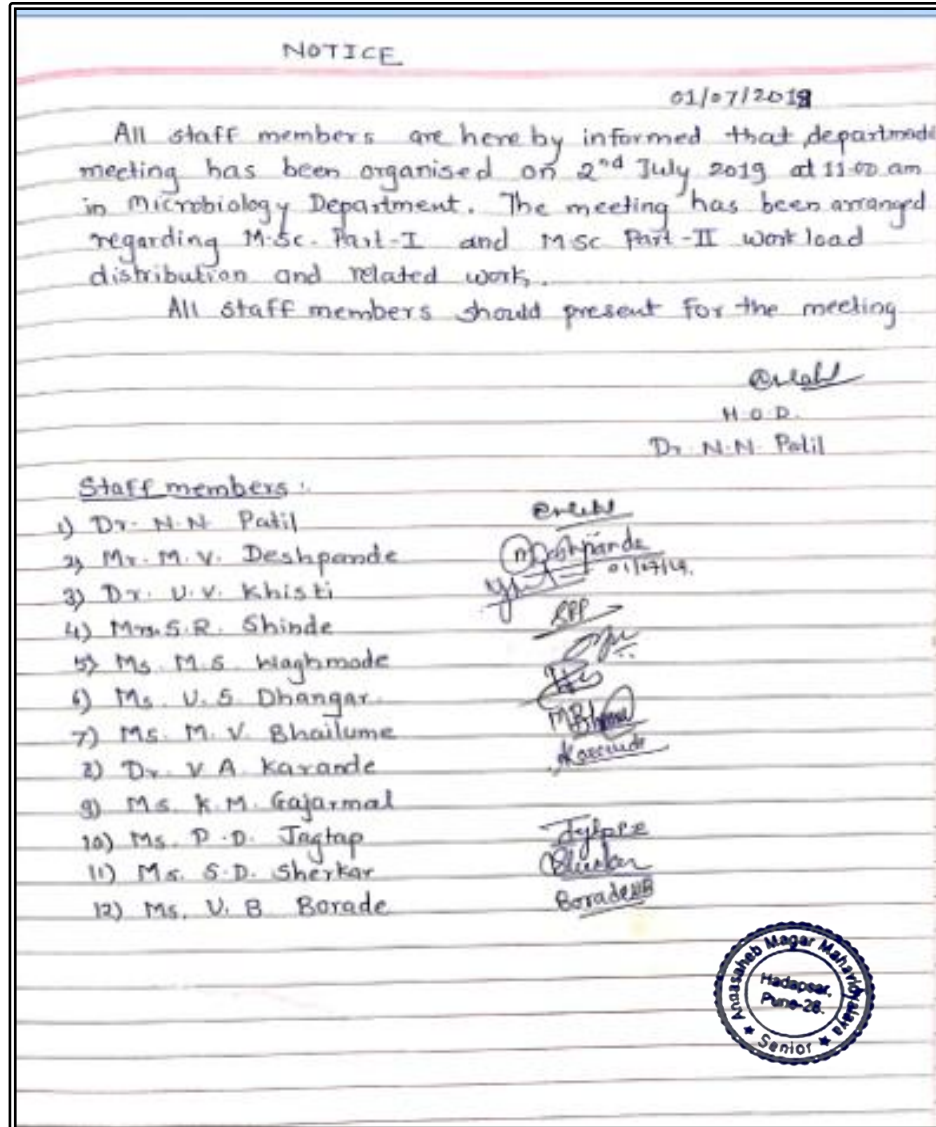 NOTICE
01/07/2019
All staff members are here by informed that departmental
meeting has been organised on 2nd July 2019 at 11.00 am
in Microbiology Department. The meeting has been arranged
regarding M.Sc. Part-I and M.Sc Part-II work load
distribution and related work.
All staff members should present for the meeting
H.O.D.
Dr. N.N. Patil
Staff members :
1) Dr. N.N. Patil
2) Mr. M.V. Deshpande Deshpande
01/07/19.
3) Dr. U.V. Khisti
4) Mrs. S.R. Shinde
5) Ms. M.S. Waghmode
6) Ms. U.S. Dhangar
7) Ms. M.V. Bhailume
8) Dr. V A. Karande
9) Ms. K.M. Gajarmal
10) Ms. P.D. Jagtap
11) Ms. S.D. Sherkar
12) Ms. V. B. Borade Borade
Annasaheb Magar Mahavidyalaya
Hadapsar,
Pune-28.
★ Senior ★